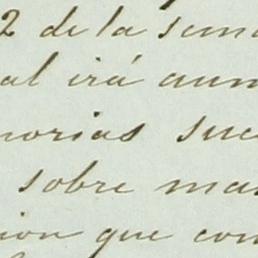 2 de la sema
al irá aum
morias suc
sobre man
ion que con